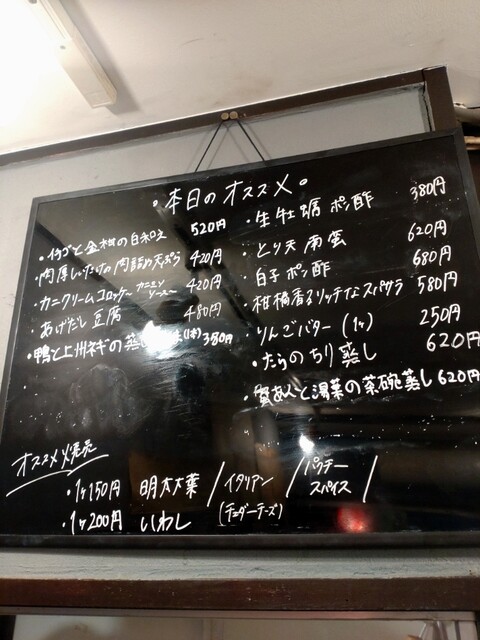 ・本日のオススメ・
・イチゴと金柑の白和え 520円
・肉厚しいたけの肉詰め天ぷら 420円
・カニクリームコロッケ〜カニミソソース〜 420円
・あげだし豆腐 480円
・鴨と上州ネギの蒸し (1本) 380円
・生牡蠣 ポン酢 380円
・とり天南蛮 620円
・白子ポン酢 680円
・柑橘香るリッチなスパサラ 580円
・りんごバター (1ヶ) 250円
・たらのちり蒸し 620円
あんと湯葉の茶碗蒸し 620円
オススメ焼売
・1ヶ150円 明太大葉 / イタリアン / パクチースパイス /
・1ヶ200円 いわし (チェダーチーズ)